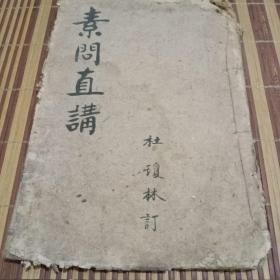 素問直講
杜瓊林訂